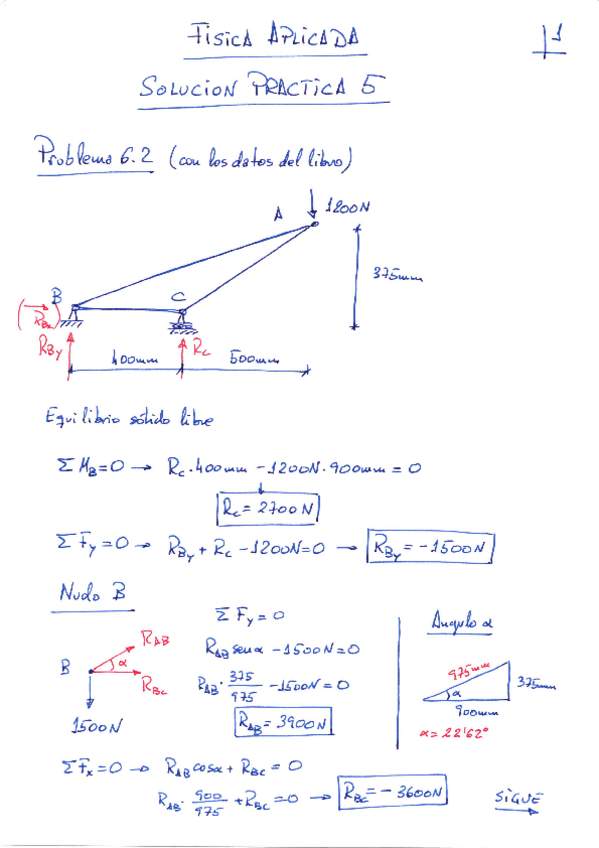 FISICA APLICADA
1
SOLUCION PRACTICA 5
Problema 6.2 (con los datos del libro)
A
1200N
375mm
B
C
(R_Bx)
R_By
R_C
400mm
500mm
Equilibrio sólido libre
ΣM_B=0 → R_C·400mm -1200N·900mm = 0
R_C = 2700N
ΣF_y=0 → R_By + R_C -1200N=0 → R_By = -1500N
Nudo B
ΣF_y=0
Angulo α
R_AB
R_AB senα -1500N=0
B
α
R_BC
975mm
375mm
R_AB · 375/975 -1500N = 0
α
900mm
1500N
R_AB = 3900N
α=22'62°
ΣF_x=0 → R_AB cosα + R_BC = 0
R_AB · 900/975 + R_BC = 0 → R_BC = -3600N
SIGUE